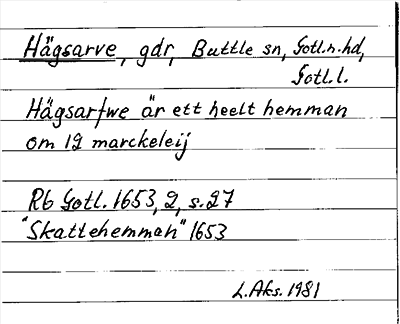 Hägsarve, gdr, Buttle sn, Gotl.n.hd,
Gotl.l.
Hägsarfwe är ett heelt hemman
om 12 marckeleij
Rb Gotl. 1653, 2, s. 27
"Skattehemman" 1653
L.Aks. 1981